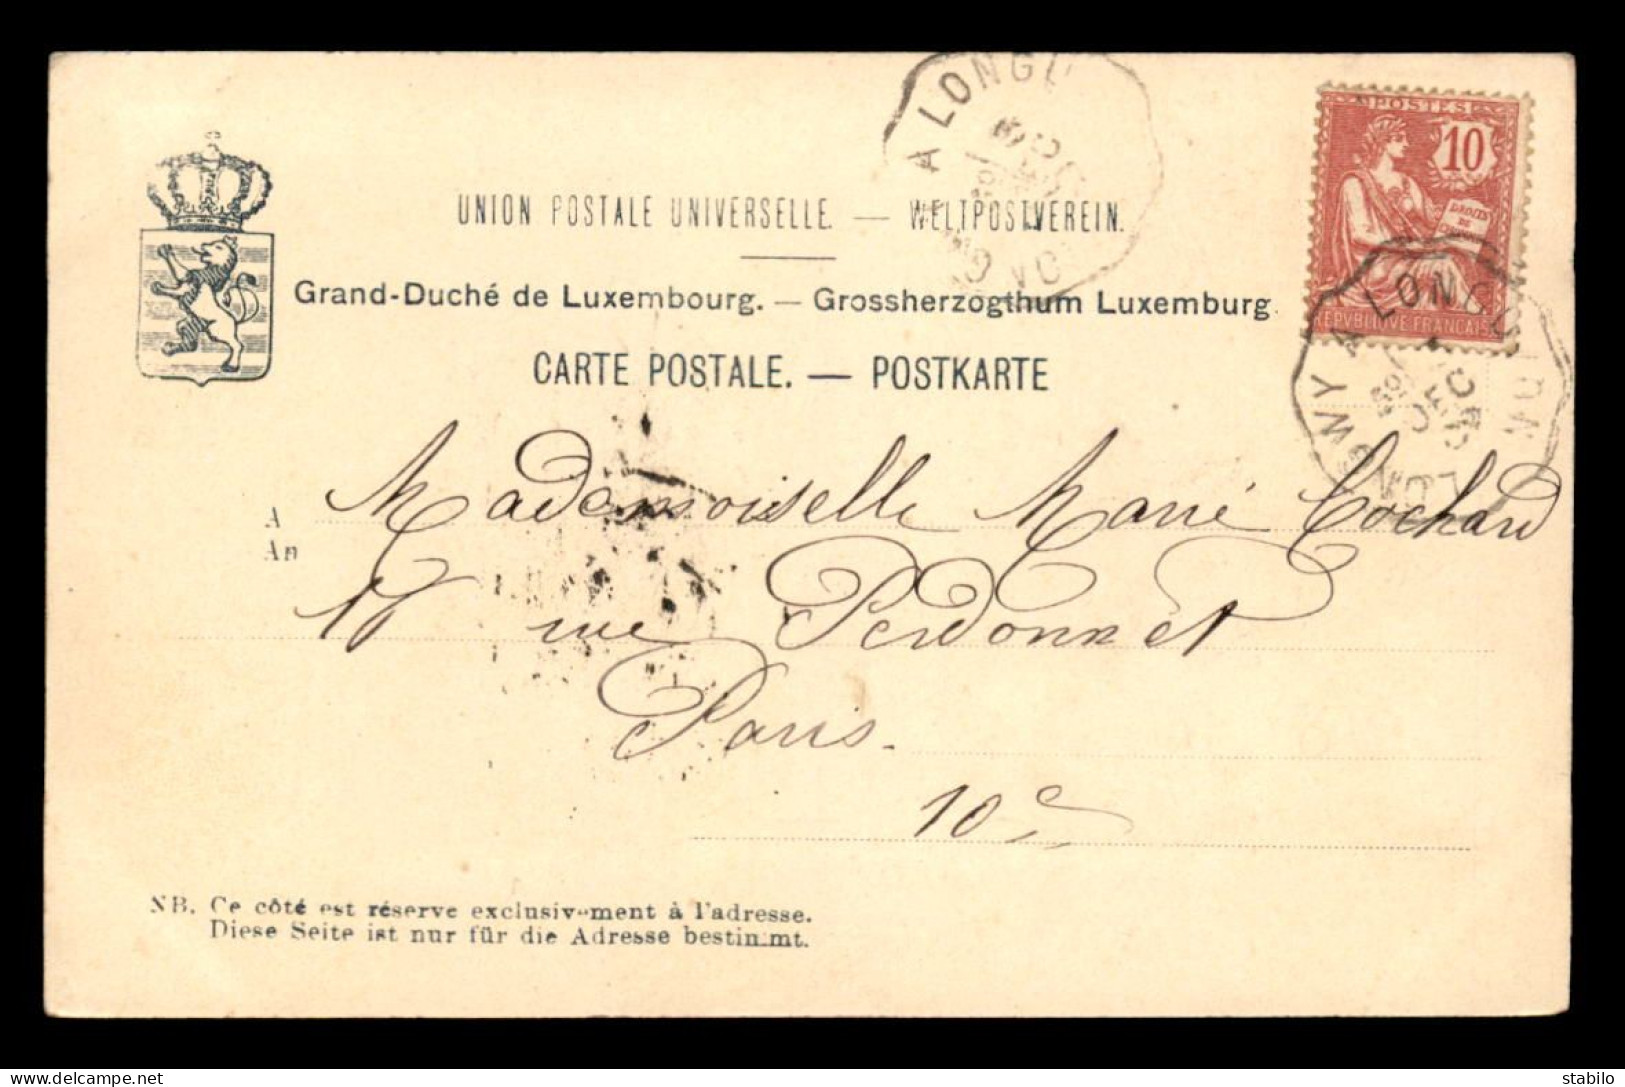 A LONGU
POSTES
10
DROITS
DE
REPVBLIQVE FRANCAISE
UNION POSTALE UNIVERSELLE. — WELTPOSTVEREIN.
Grand-Duché de Luxembourg. — Grossherzogthum Luxemburg
CARTE POSTALE. — POSTKARTE
LONGWY A LONGUYON
DEC
A Mademoiselle Marie Cochard
An
17 rue Perdonnet
Paris.
10e
NB. Ce côté est réserve exclusivement à l'adresse.
Diese Seite ist nur für die Adresse bestimmt.
stabilo